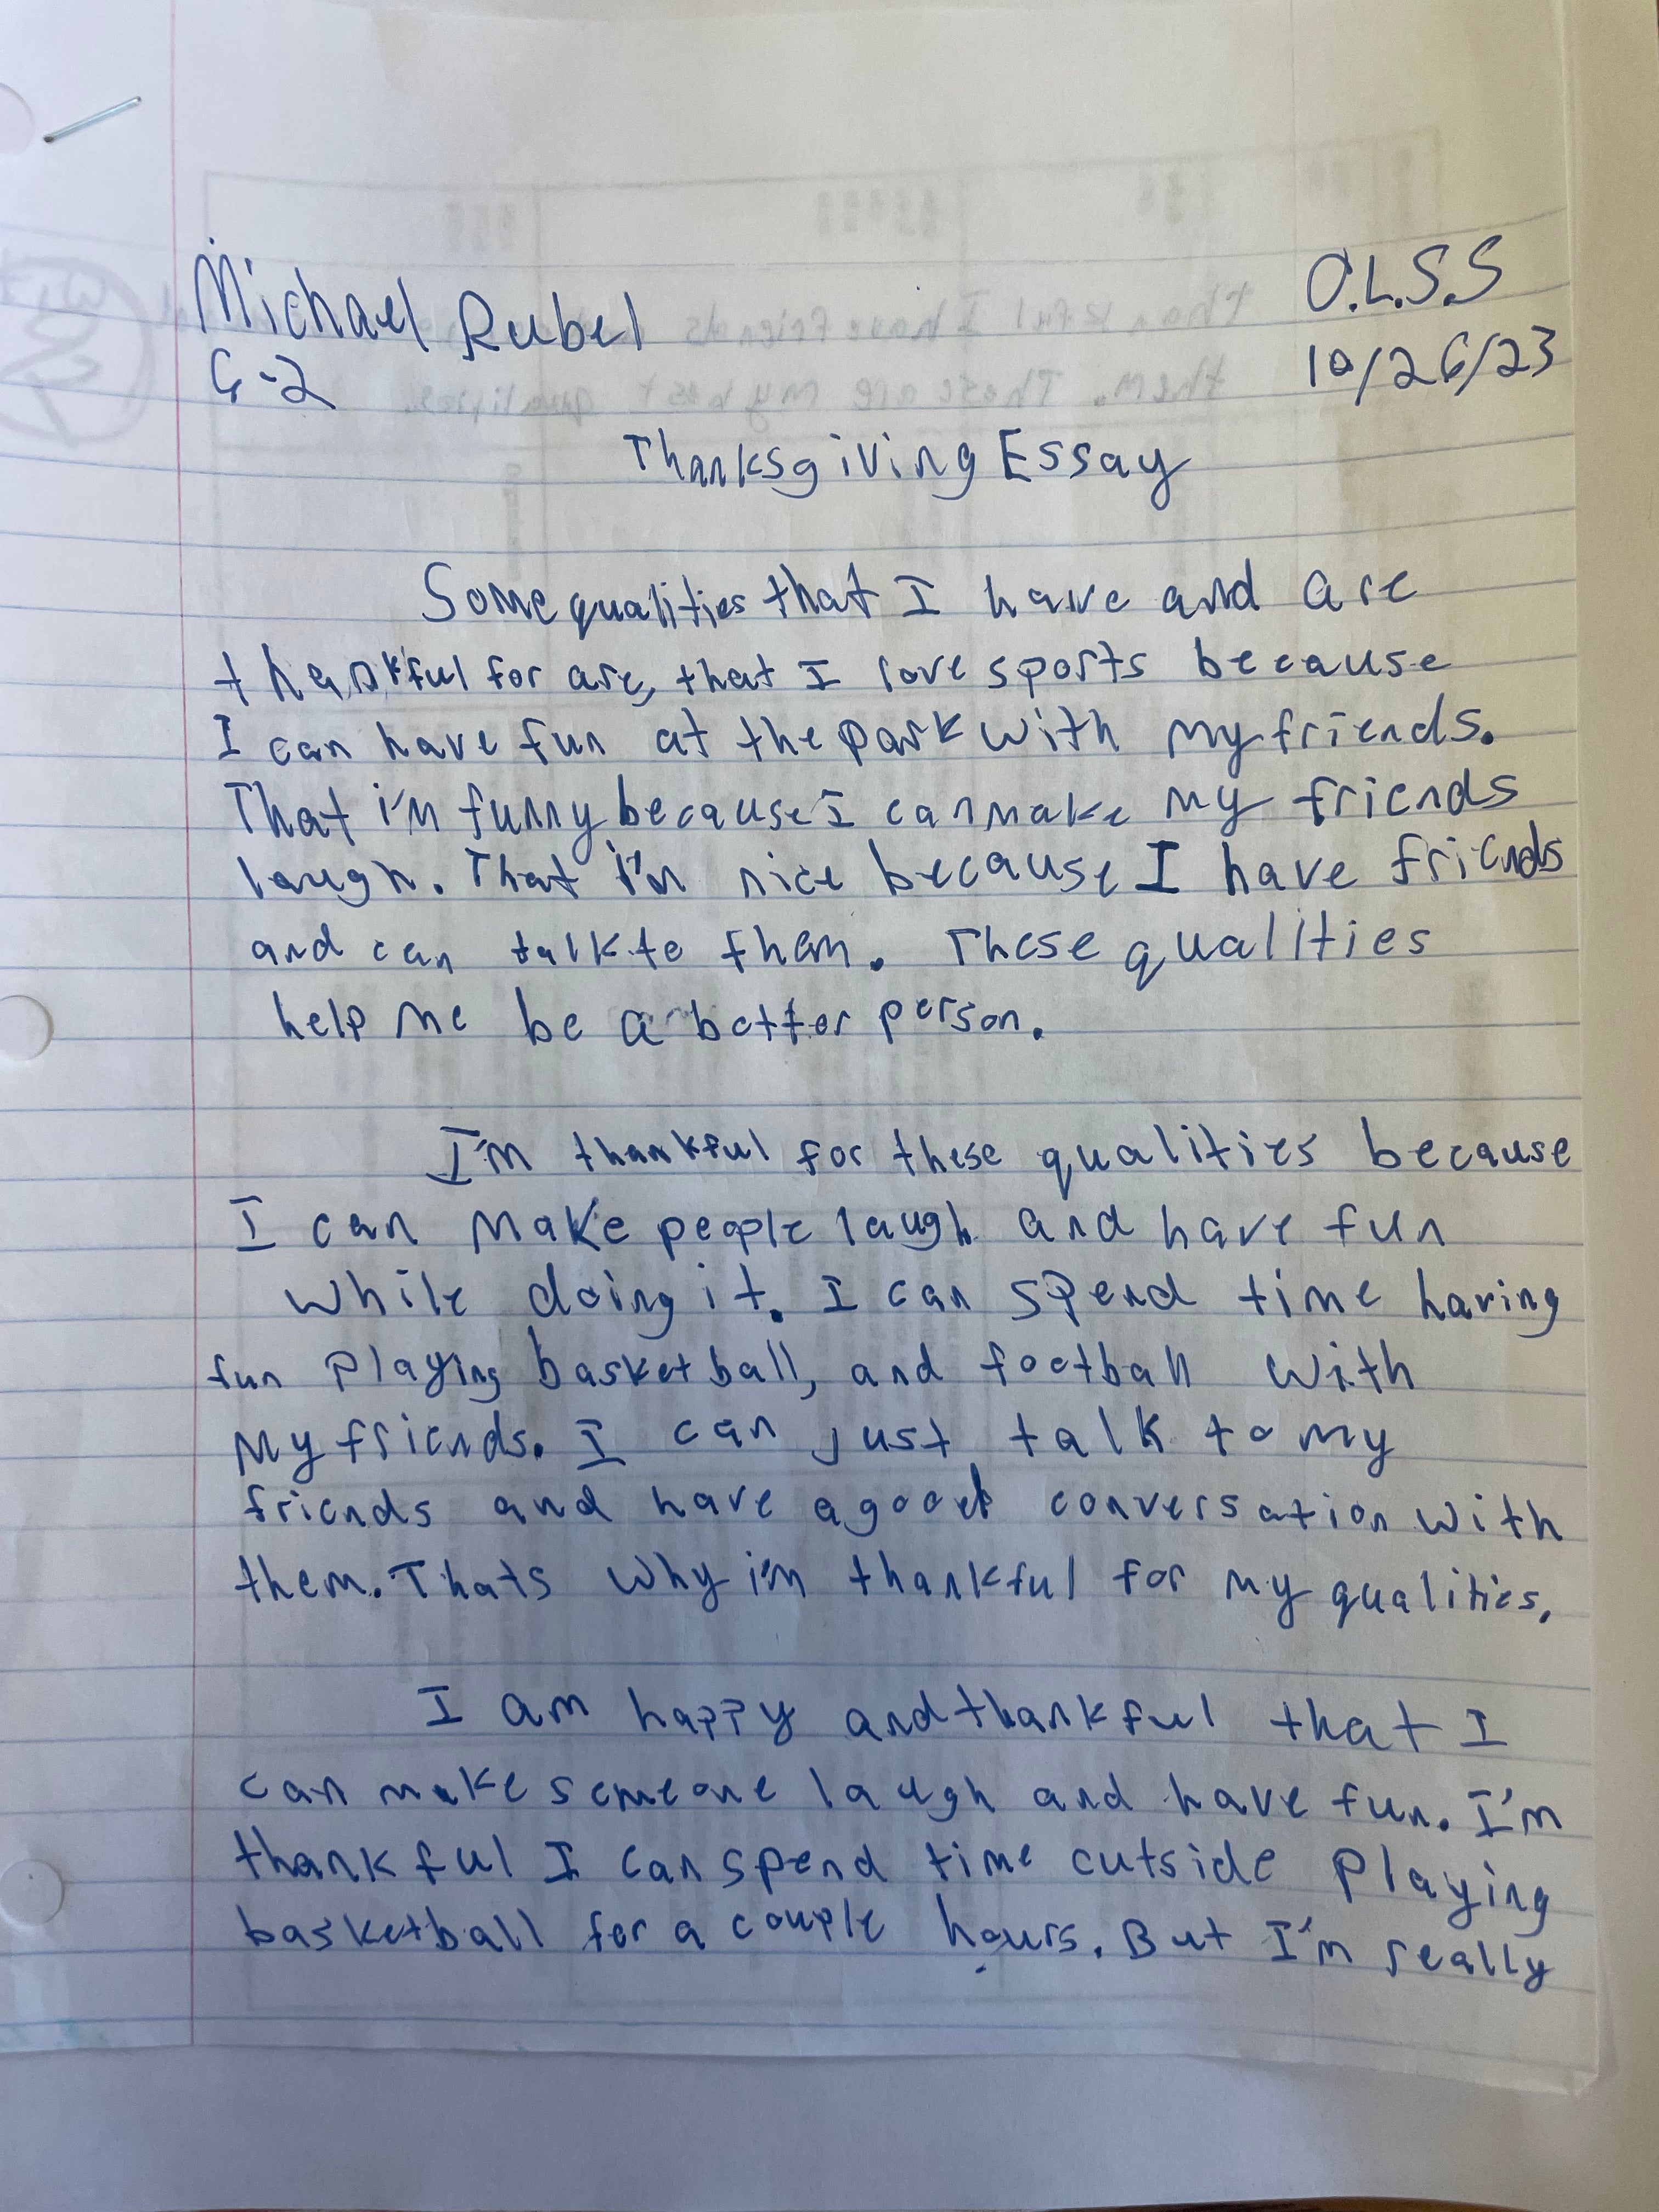 Michael Rubel O.L.S.S
G-2 10/26/23
Thanksgiving Essay
Some qualities that I have and are
thankful for are, that I love sports because
I can have fun at the park with my friends.
That i'm funny because I can make my friends
laugh. That I'm nice because I have friends
and can talk to them. These qualities
help me be a better person.
I'm thankful for these qualities because
I can make people laugh and have fun
while doing it. I can spend time having
fun playing basketball, and football with
my friends. I can just talk to my
friends and have a good conversation with
them. Thats why i'm thankful for my qualities.
I am happy and thankful that I
can make someone laugh and have fun. I'm
thankful I can spend time outside playing
basketball for a couple hours. But I'm really